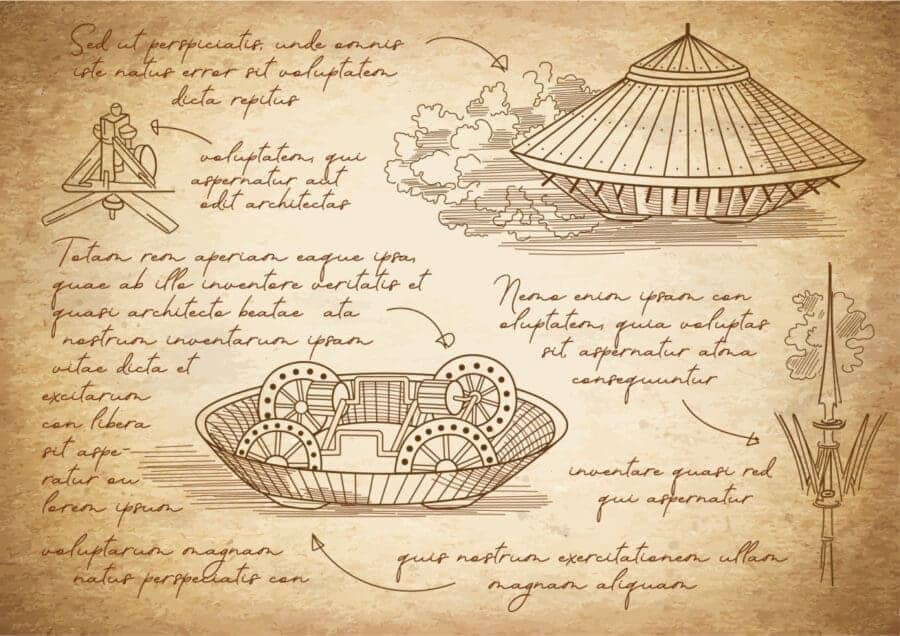 Sed ut perspiciatis, unde omnis
iste natus error sit voluptatem
dicta repitus
voluptatem, qui
aspernatur aut
odit architectas
Totam rem aperiam eaque ipsa,
quae ab illo inventore veritatis et
quasi architecto beatae ata
nostrum inventarum ipsam
vitae dicta et
excitarum
con libera
sit aspe-
ratur ou
lorem ipsum
voluptarum magnam
natus perspeciatis con
Nemo enim ipsam con
oluptatem, quia voluptas
sit aspernatur atma
consequuntur
inventare quasi red
qui aspernatur
quis nostrum exercitationem ullam
magnam aliquam